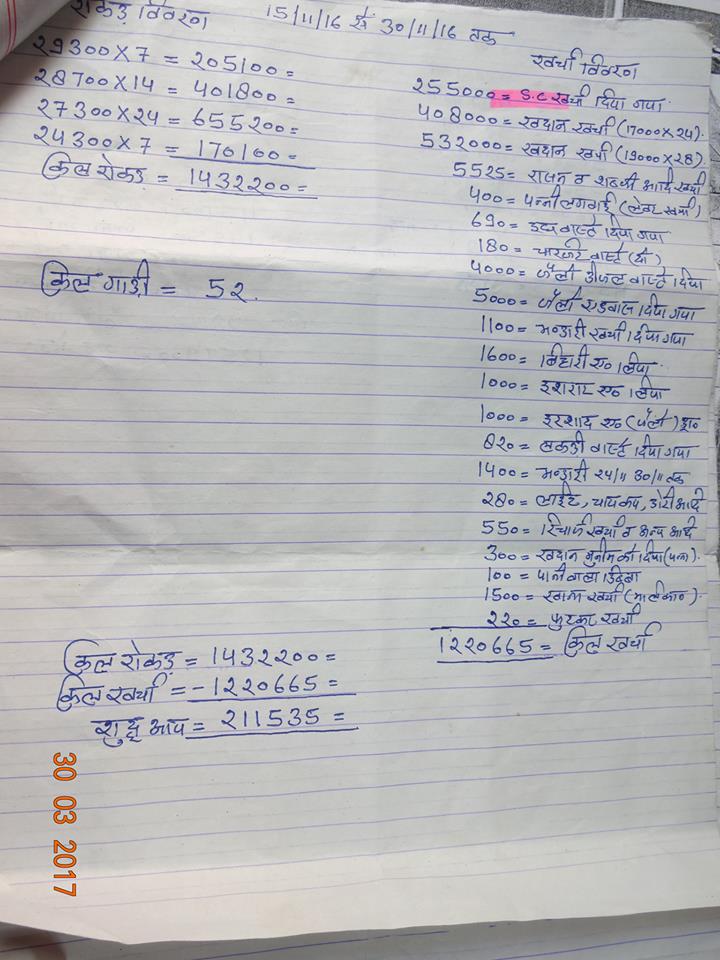 रोकड़ विवरण 15/11/16 से 30/11/16 तक
29300×7 = 205100=
28700×14 = 401800=
27300×24 = 655200=
24300×7 = 170100=
कुल रोकड़ = 1432200=
कुल गाड़ी = 52.
खर्चा विवरण
255000= S.C खर्चा दिया गया
408000= खदान खर्चा (17000×24).
532000= खदान खर्चा (19000×28).
5525= राशन व शब्जी आदि खर्चा
400= पन्नी लगवाई (लेबर खर्चा)
690= वास्ते दिया गया
180= चारजर वास्ते
4000= जैलो डीजल वास्ते दिया
5000= जैलो एडवांस दिया गया
1100= भन्डारी खर्चा दिया गया
1600= बिहारी ए० लिया
1000= इशराद ए० लिया
1000= इरशाद ए० (जैलो) ड्रा०
820= लकड़ी वास्ते दिया गया
1400= भन्डारी 24/11 30/11 तक
280= लाईट, चाय कप, डोरी आदि
550= रिचार्ज खर्चा व अन्य आदि
300= खदान मुनीम को दिया
100= पानी वाला डिब्बा
1500= खाना खर्चा
220= फुटकर खर्चा
1220665= कुल खर्चा
कुल रोकड़ = 1432200=
कुल खर्चा = -1220665=
शुद्ध आय = 211535=
30 03 2017